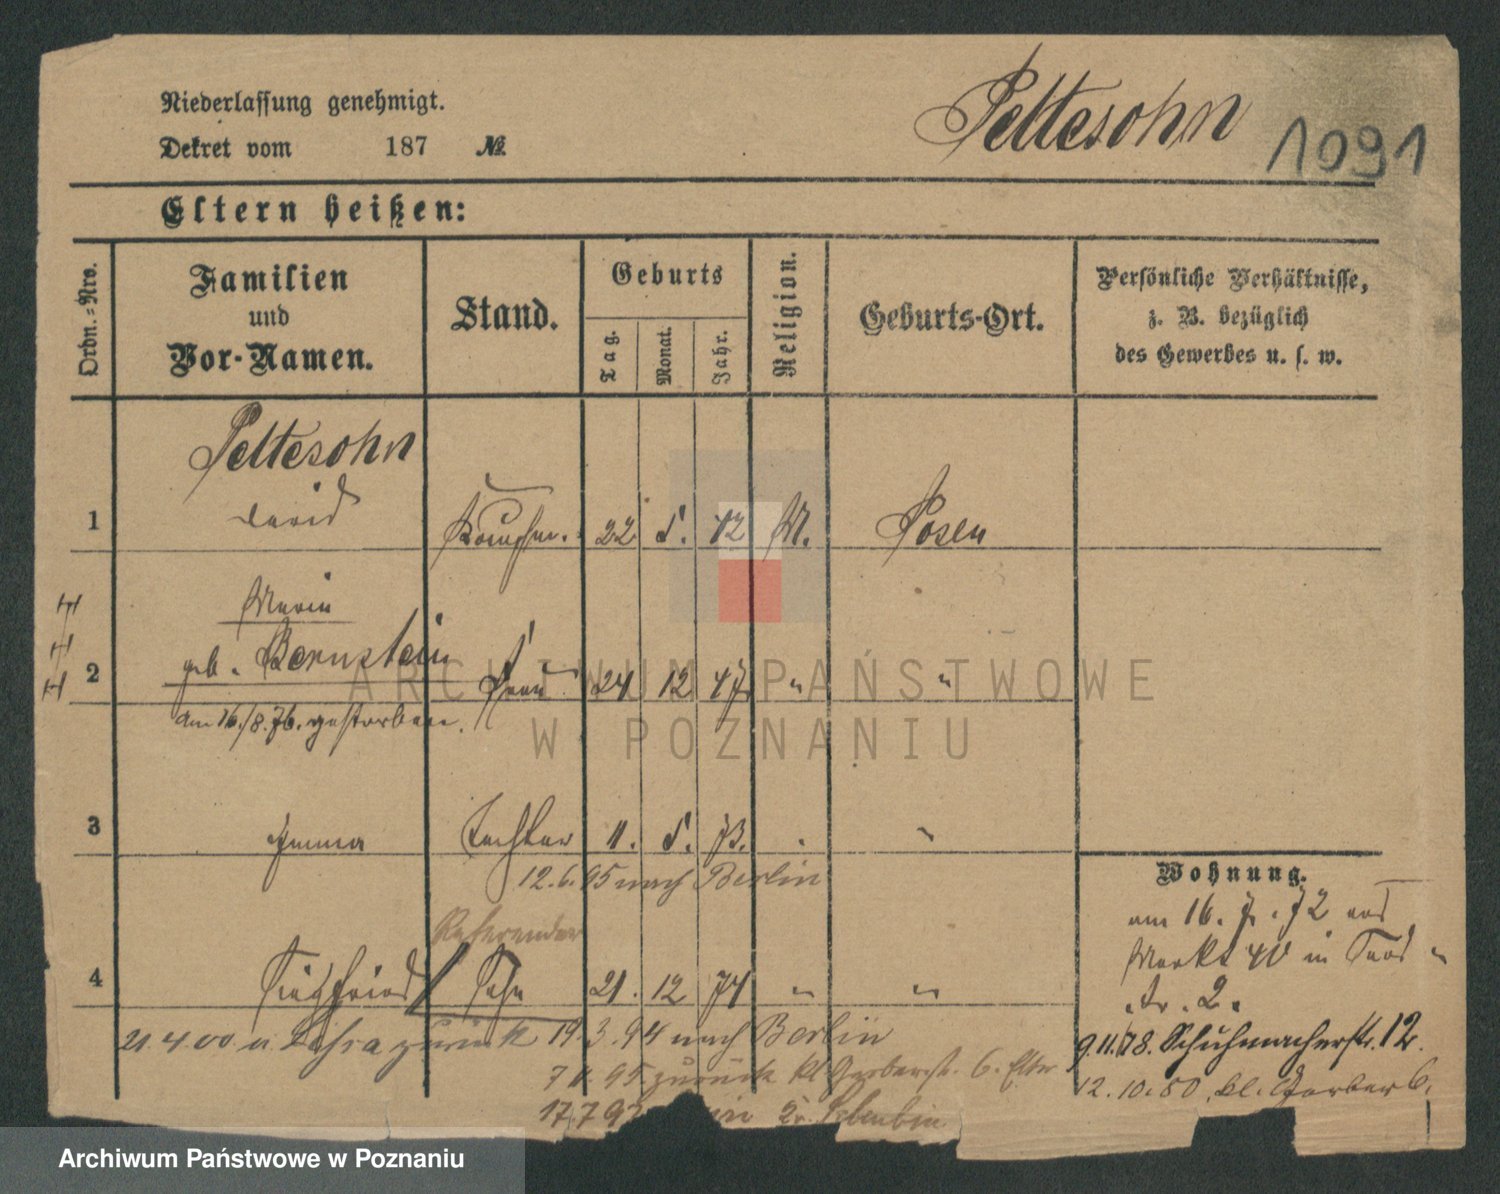 Niederlassung genehmigt.
Dekret vom 187 №
Peltesohn
1091
Eltern heißen:
Ordn.-Nro.
Familien und Vor-Namen.
Stand.
Geburts
Tag.
Monat.
Jahr.
Religion.
Geburts-Ort.
Persönliche Verhältnisse,
z. B. bezüglich
des Gewerbes u. s. w.
Peltesohn
1 David Kaufm. 22 5. 42 M. Posen
Marie
2 geb. Bernstein Frau 24 12 47 " "
am 16./8. 76. gestorben.
3 Emma Tochter 11. 5. 73. " "
12.6.95 nach Berlin
Referendar
4 Siegfried Sohn 21. 12 74 " "
21.4.00 zurück 19.3.94 nach Berlin
95 zurück kl Gerberstr. 6.
17.7.9
Wohnung.
am 16. 7. 72 aus
Markt in
9.11.78. Schuhmacherstr. 12.
12.10.80. kl. Gerber 6.
ARCHIWUM PAŃSTWOWE
W POZNANIU
Archiwum Państwowe w Poznaniu